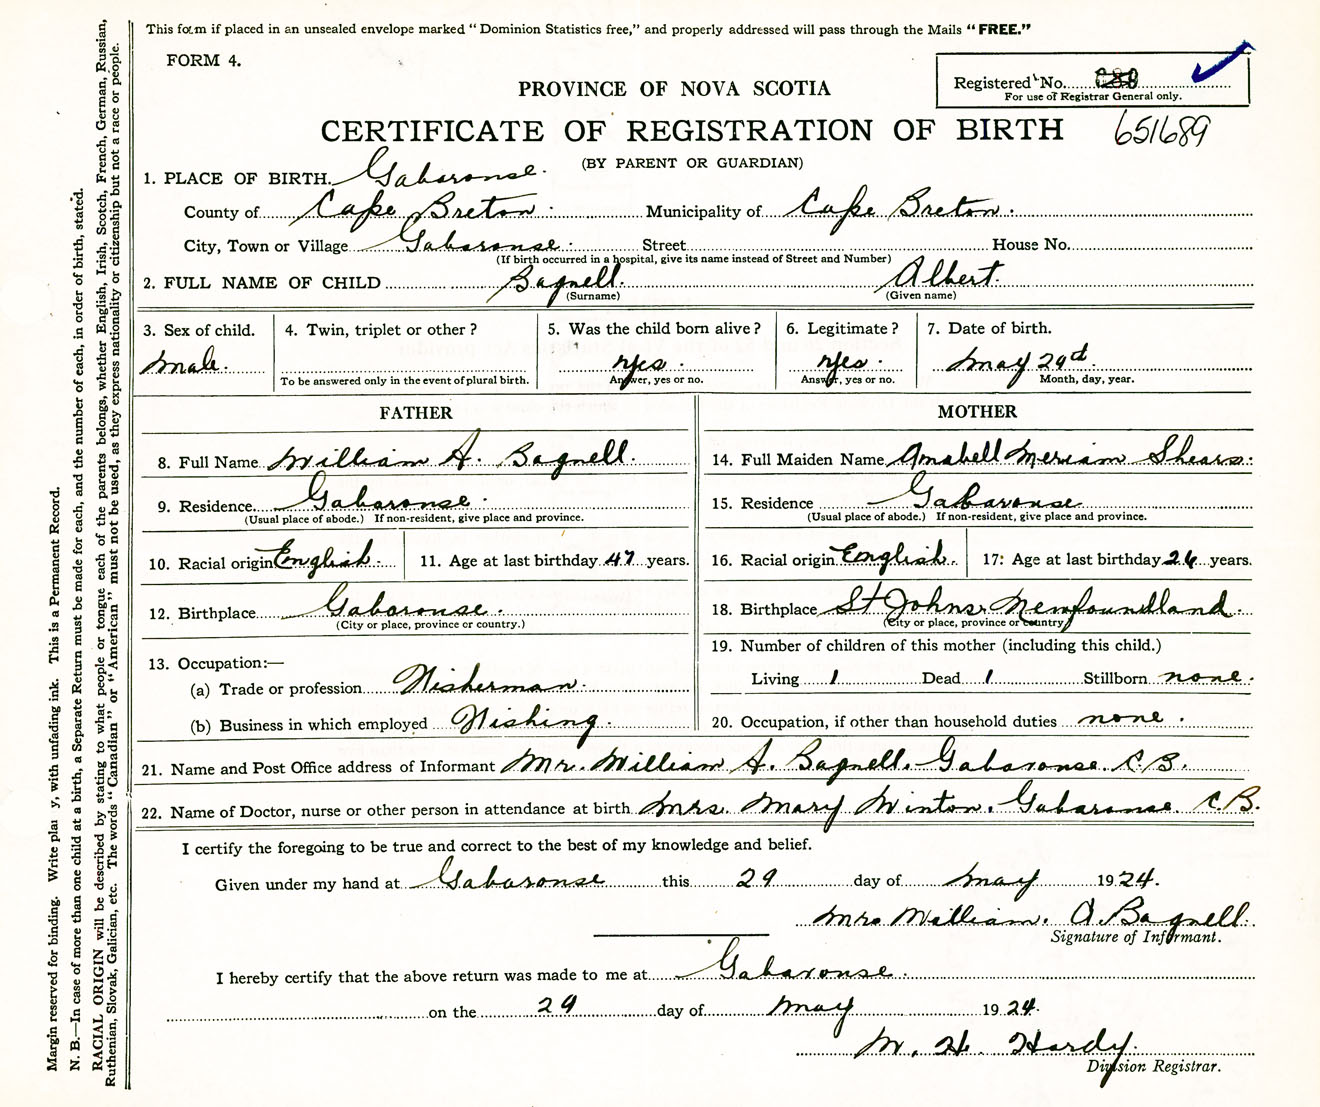 This form if placed in an unsealed envelope marked "Dominion Statistics free," and properly addressed will pass through the Mails "FREE."
FORM 4.
Registered No.
For use of Registrar General only.
PROVINCE OF NOVA SCOTIA
CERTIFICATE OF REGISTRATION OF BIRTH 651689
(BY PARENT OR GUARDIAN)
1. PLACE OF BIRTH. Gabarouse.
County of Cape Breton. Municipality of Cape Breton.
City, Town or Village Gabarouse. Street House No.
(If birth occurred in a hospital, give its name instead of Street and Number)
2. FULL NAME OF CHILD Bagnell. Albert.
(Surname) (Given name)
3. Sex of child. 4. Twin, triplet or other? 5. Was the child born alive? 6. Legitimate? 7. Date of birth.
male. yes. yes. May 29d.
To be answered only in the event of plural birth. Answer, yes or no. Answer, yes or no. Month, day, year.
FATHER MOTHER
8. Full Name William A. Bagnell. 14. Full Maiden Name Amabell Meriam Shears.
9. Residence Gabarouse. 15. Residence Gabarouse
(Usual place of abode.) If non-resident, give place and province. (Usual place of abode.) If non-resident, give place and province.
10. Racial origin English. 11. Age at last birthday 47 years. 16. Racial origin English. 17: Age at last birthday 26 years.
12. Birthplace Gabarouse. 18. Birthplace St Johns Newfoundland.
(City or place, province or country.) (City or place, province or country)
13. Occupation:— 19. Number of children of this mother (including this child.)
(a) Trade or profession Fisherman. Living 1 Dead 1 Stillborn none.
(b) Business in which employed Fishing. 20. Occupation, if other than household duties none.
21. Name and Post Office address of Informant Mr. William A. Bagnell. Gabarouse. C.B.
22. Name of Doctor, nurse or other person in attendance at birth Mrs. Mary Winton. Gabarouse C.B.
I certify the foregoing to be true and correct to the best of my knowledge and belief.
Given under my hand at Gabarouse this 29 day of May 1924.
Mrs William. A. Bagnell.
Signature of Informant.
I hereby certify that the above return was made to me at Gabarouse.
on the 29 day of May 1924.
M. H. Hardy.
Division Registrar.
Margin reserved for binding. Write plai y, with unfading ink. This is a Permanent Record.
N. B.—In case of more than one child at a birth, a Separate Return must be made for each, and the number of each, in order of birth, stated.
RACIAL ORIGIN will be described by stating to what people or tongue each of the parents belongs, whether English, Irish, Scotch, French, German, Russian,
Ruthenian, Slovak, Galician, etc. The words "Canadian" or "American" must not be used, as they express nationality or citizenship but not a race or people.